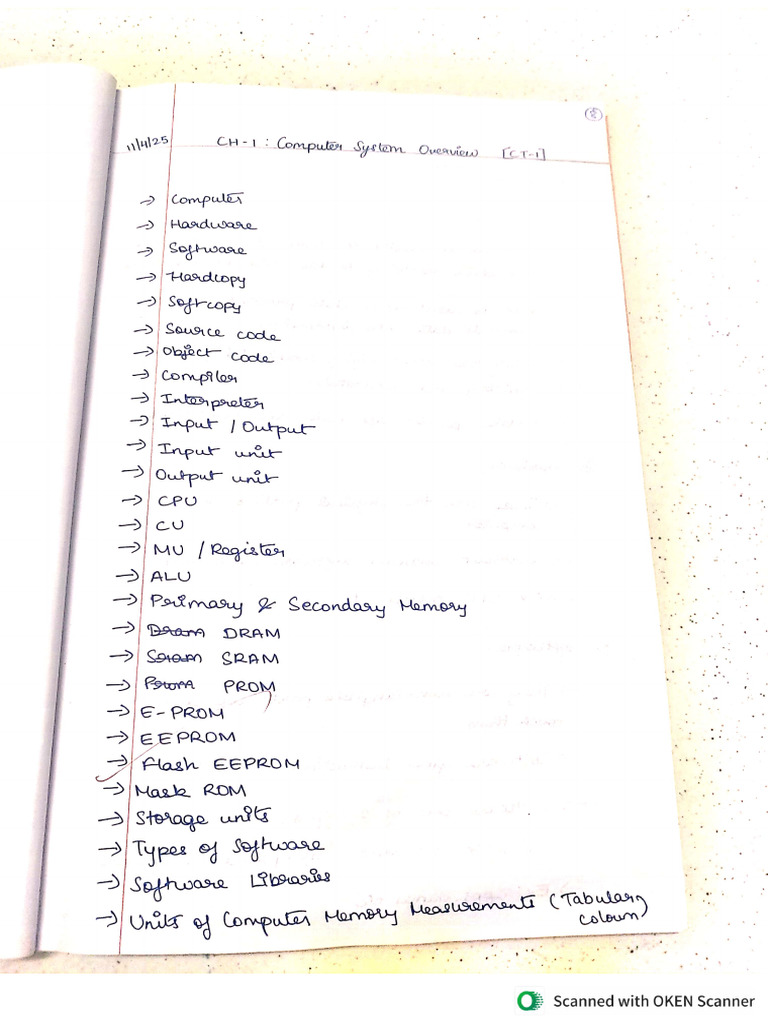 11/4/25 CH-1 : Computer System Overview [CT-1]
→ Computer
→ Hardware
→ Software
→ Hardcopy
→ Softcopy
→ Source code
→ Object code
→ Compiler
→ Interpreter
→ Input / Output
→ Input unit
→ Output unit
→ CPU
→ CU
→ MU / Register
→ ALU
→ Primary & Secondary Memory
→ Dram DRAM
→ Sram SRAM
→ Prom PROM
→ E-PROM
→ EEPROM
→ Flash EEPROM
→ Mask ROM
→ Storage units
→ Types of Software
→ Software Libraries
→ Units of Computer Memory Measurements (Tabular
coloum)
Scanned with OKEN Scanner